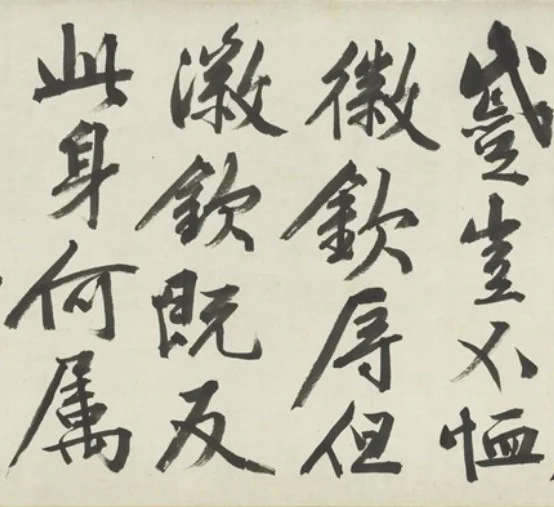 蹙豈不恤
徽欽辱但
徽欽既反
此身何属